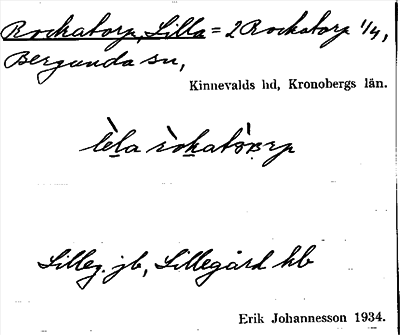 Rockatorp, Lilla = 2 Rockatorp 1/4,
Bergunda sn,
Kinnevalds hd, Kronobergs län.
Lilleg. jb, Lillegård hb
Erik Johannesson 1934.